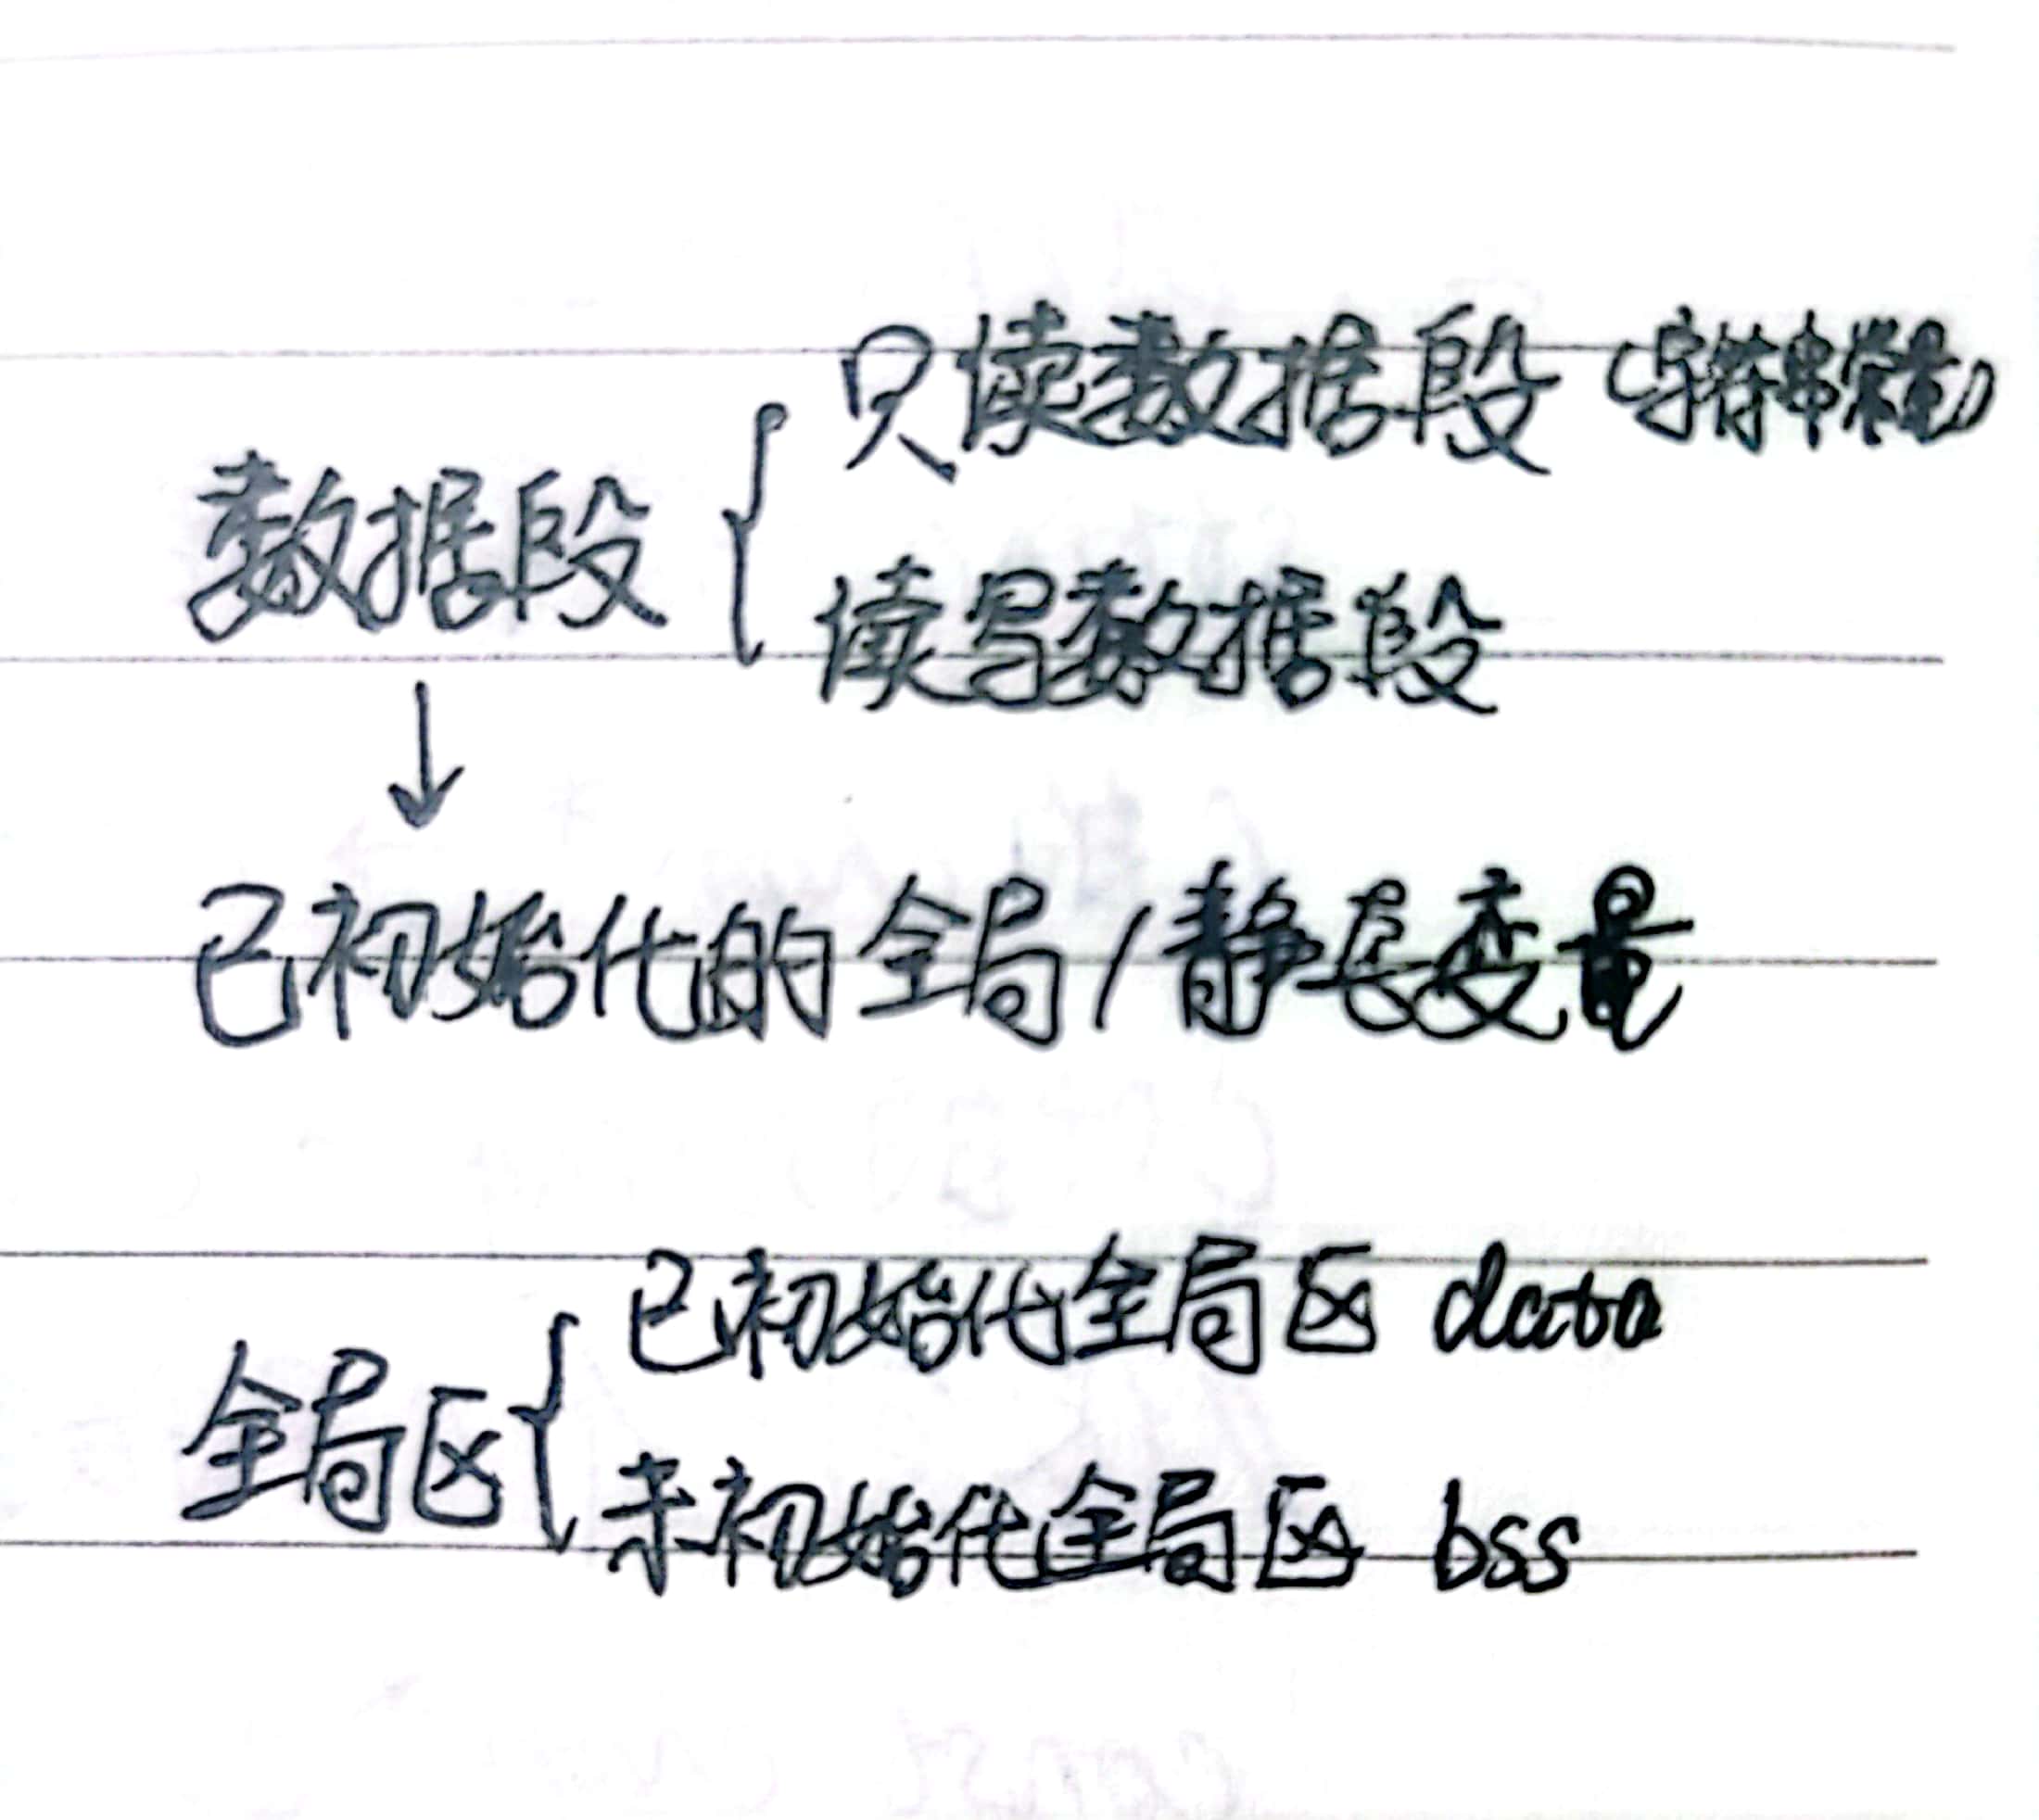 只读数据段（字符串常量）
数据段
读写数据段
↓
已初始化的全局/静态变量
已初始化全局区 data
全局区
未初始化全局区 bss